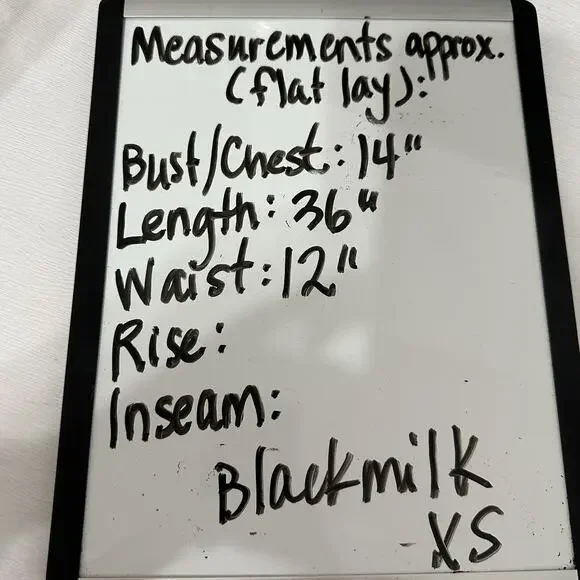 Measurements approx.
(flat lay):
Bust/Chest: 14"
Length: 36"
Waist: 12"
Rise:
Inseam:
Blackmilk
XS